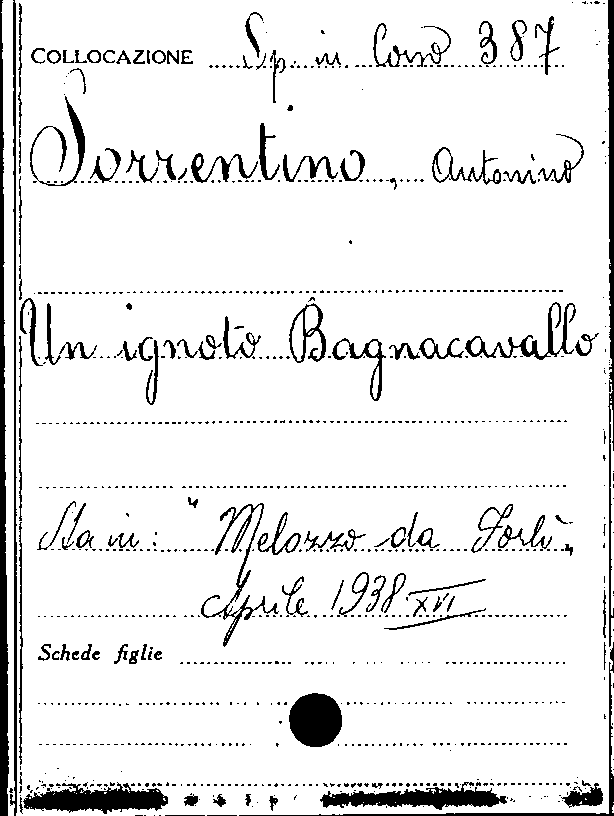 COLLOCAZIONE Sp. in Corso 387
Sorrentino, Antonino
Un ignoto Bagnacavallo
Sta in: "Melozzo da Forlì„
Aprile 1938 XVI
Schede figlie